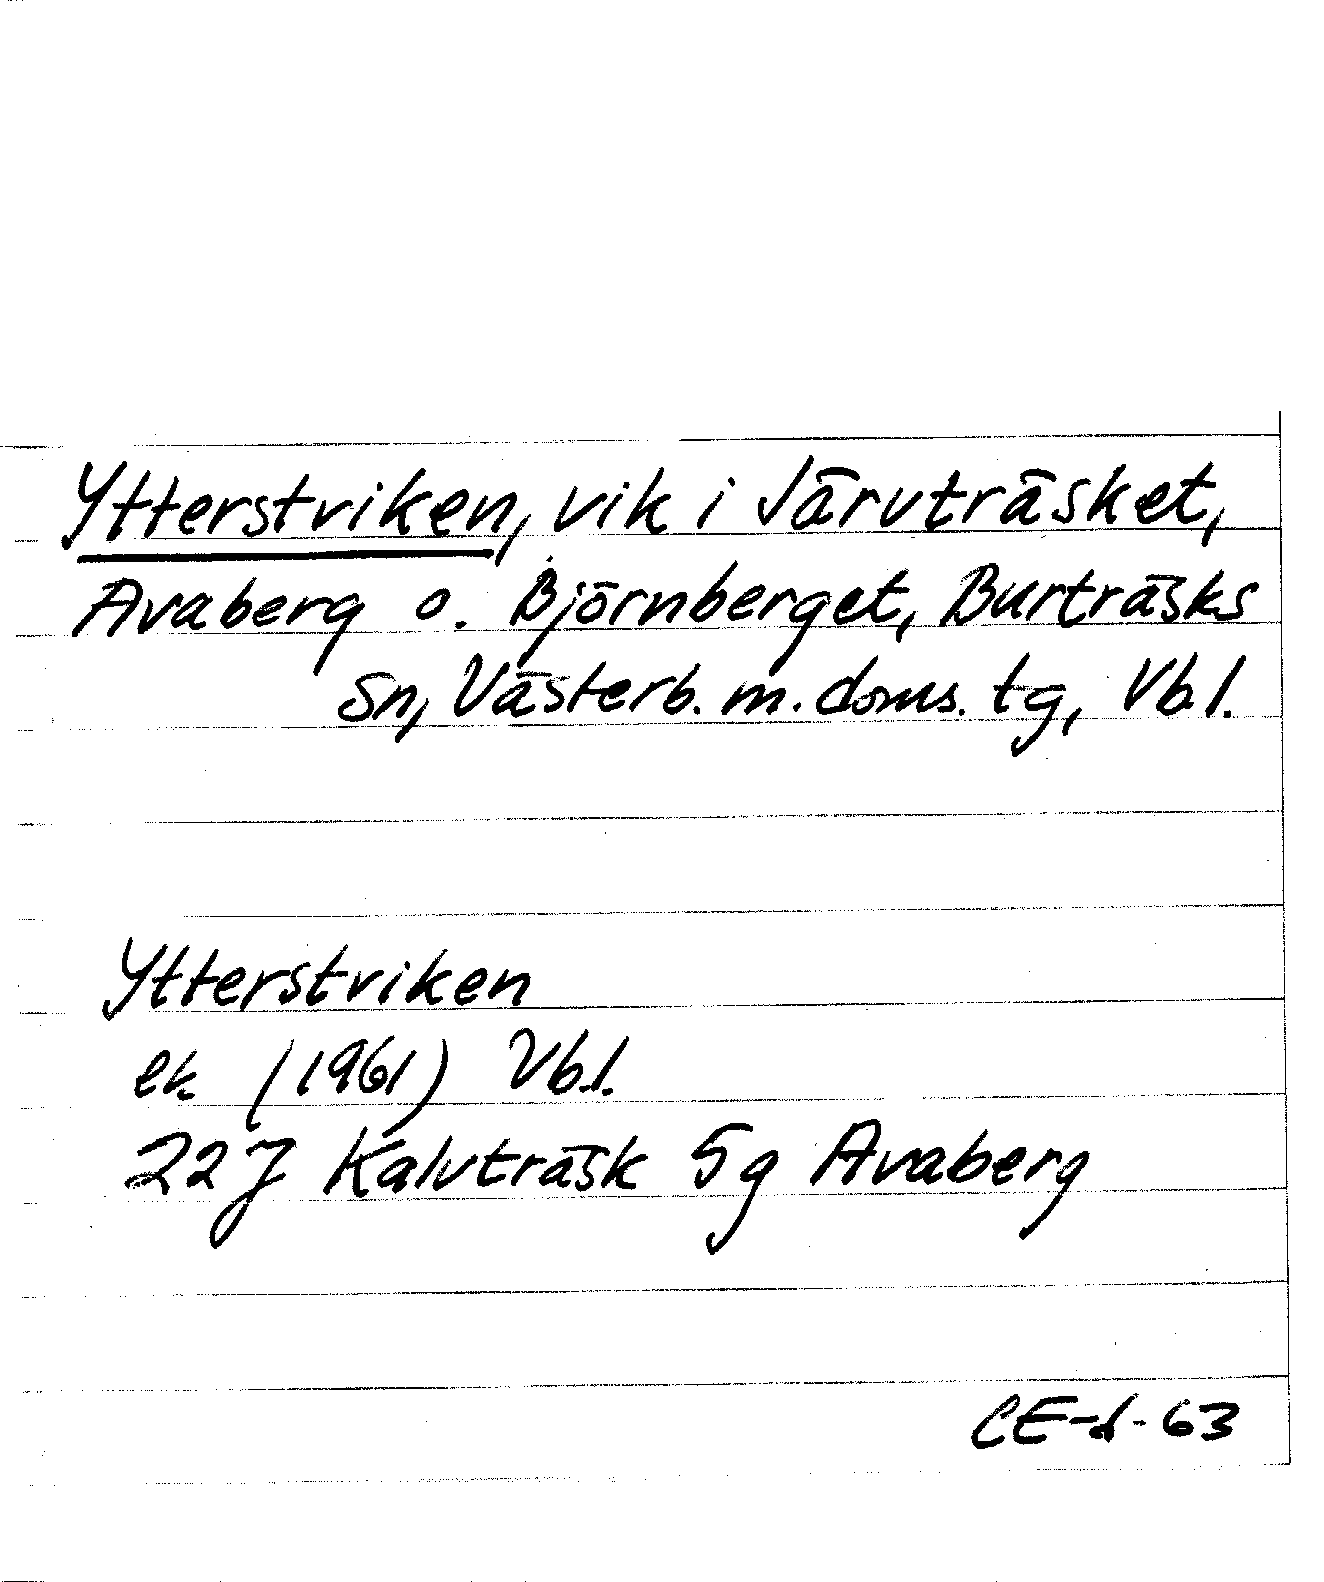 Ytterstviken, vik i Järvträsket,
Avaberg o. Björnberget, Burträsks
sn, Västerb. m. doms. tg, Vb. l.
Ytterstviken
ek (1961) Vb.l.
22 J Kalvträsk 5g Avaberg
CE-d-63